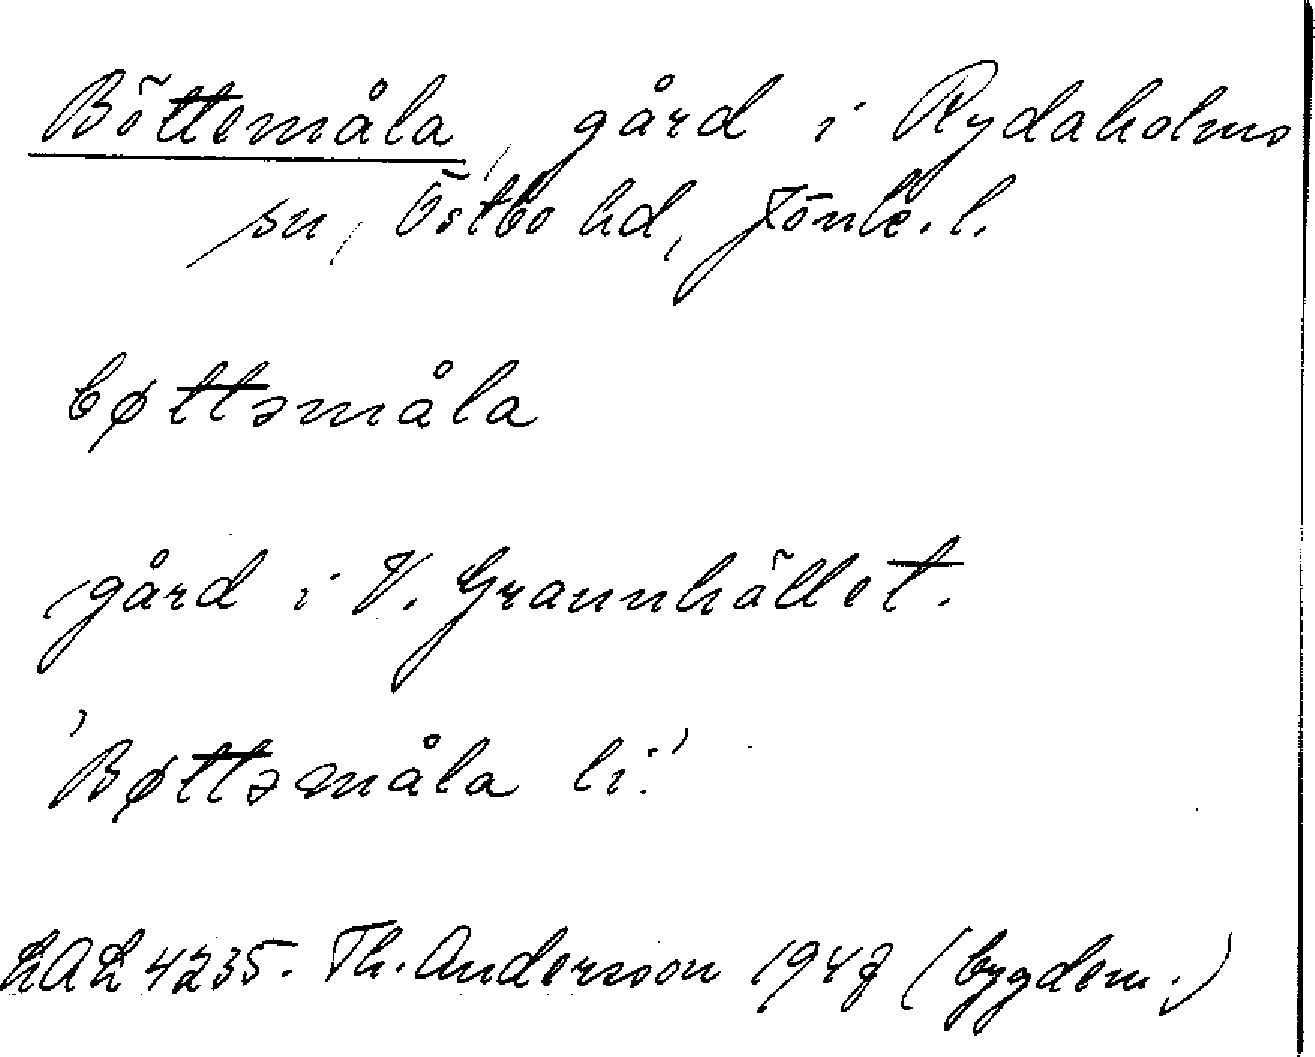 Böttemåla, gård i Rydaholms
sn, Östbo hd, Jönk. l.
bøttəmåla
gård i V. Grannhället.
'Bøttəmåla li.'
LAL 4235. Th. Andersson 1947 (bygdem.)